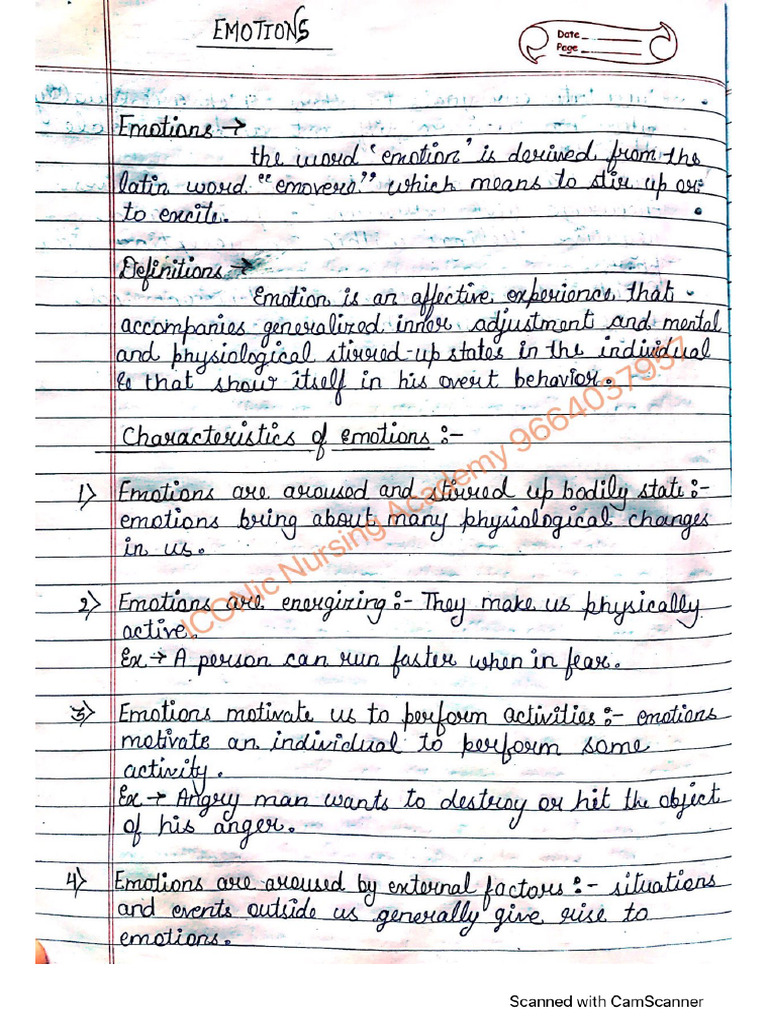 EMOTIONS
Date
Page
Emotions →
the word "emotion" is derived from the
latin word "emovere" which means to stir up or
to excite.
Definitions →
Emotion is an affective experience that
accompanies generalized inner adjustment and mental
and physiological stirred-up states in the individual
& that show itself in his overt behavior.
Characteristics of emotions :-
1) Emotions are aroused and stirred up bodily state :-
emotions bring about many physiological changes
in us.
2) Emotions are energizing :- They make us physically
active.
Ex → A person can run faster when in fear.
3) Emotions motivate us to perform activities :- emotions
motivate an individual to perform some
activity.
Ex → Angry man wants to destroy or hit the object
of his anger.
4) Emotions are aroused by external factors :- situations
and events outside us generally give rise to
emotions.
ICONic Nursing Academy 9664037957
Scanned with CamScanner